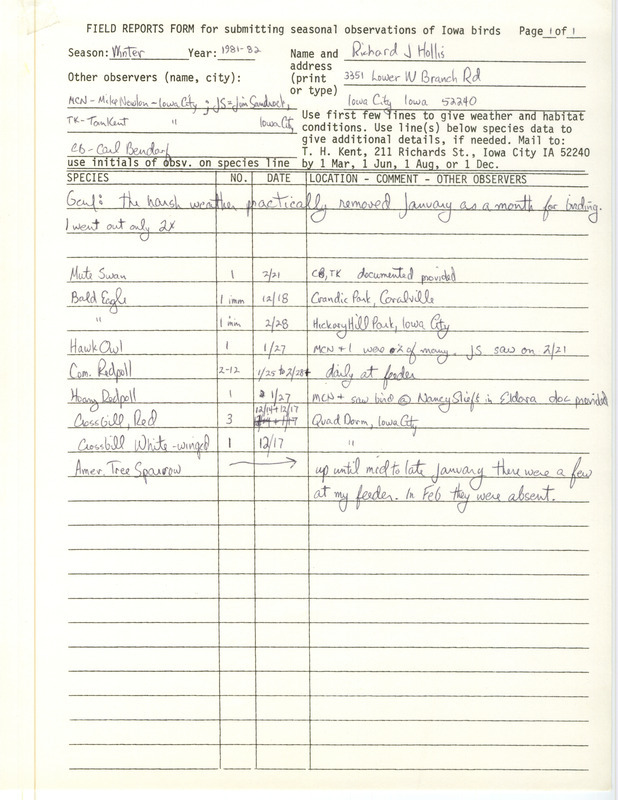 FIELD REPORTS FORM for submitting seasonal observations of Iowa birds Page 1 of 1
Season: Winter Year: 1981-82 Name and Richard J Hollis
address
Other observers (name, city): (print 3351 Lower W Branch Rd
or type)
MCN - Mike Newlon - Iowa City ; JS = Jim Sandrock, Iowa City Iowa 52240
TK - Tom Kent " Iowa City
Use first few lines to give weather and habitat
conditions. Use line(s) below species data to
give additional details, if needed. Mail to:
CB - Carl Bendorf T. H. Kent, 211 Richards St., Iowa City IA 52240
use initials of obsv. on species line by 1 Mar, 1 Jun, 1 Aug, or 1 Dec.
SPECIES NO. DATE LOCATION - COMMENT - OTHER OBSERVERS
Genl: the harsh weather practically removed January as a month for birding.
I went out only 2x
Mute Swan 1 2/21 CB, TK documented provided
Bald Eagle 1 imm 12/18 Crandic Park, Coralville
" 1 imm 2/28 Hickory Hill Park, Iowa City
Hawk Owl 1 1/27 MCN + I were 2 of many. JS saw on 2/21
Com. Redpoll 2-12 1/25 to 2/28+ daily at feeder
Hoary Redpoll 1 1/27 MCN + saw bird @ Nancy in Eldora doc provided
Crossbill, Red 3 12/14 + 12/17 Quad Dorm, Iowa City
Crossbill White-winged 1 12/17 "
Amer. Tree Sparrow → up until mid to late January there were a few
at my feeder. In Feb they were absent.